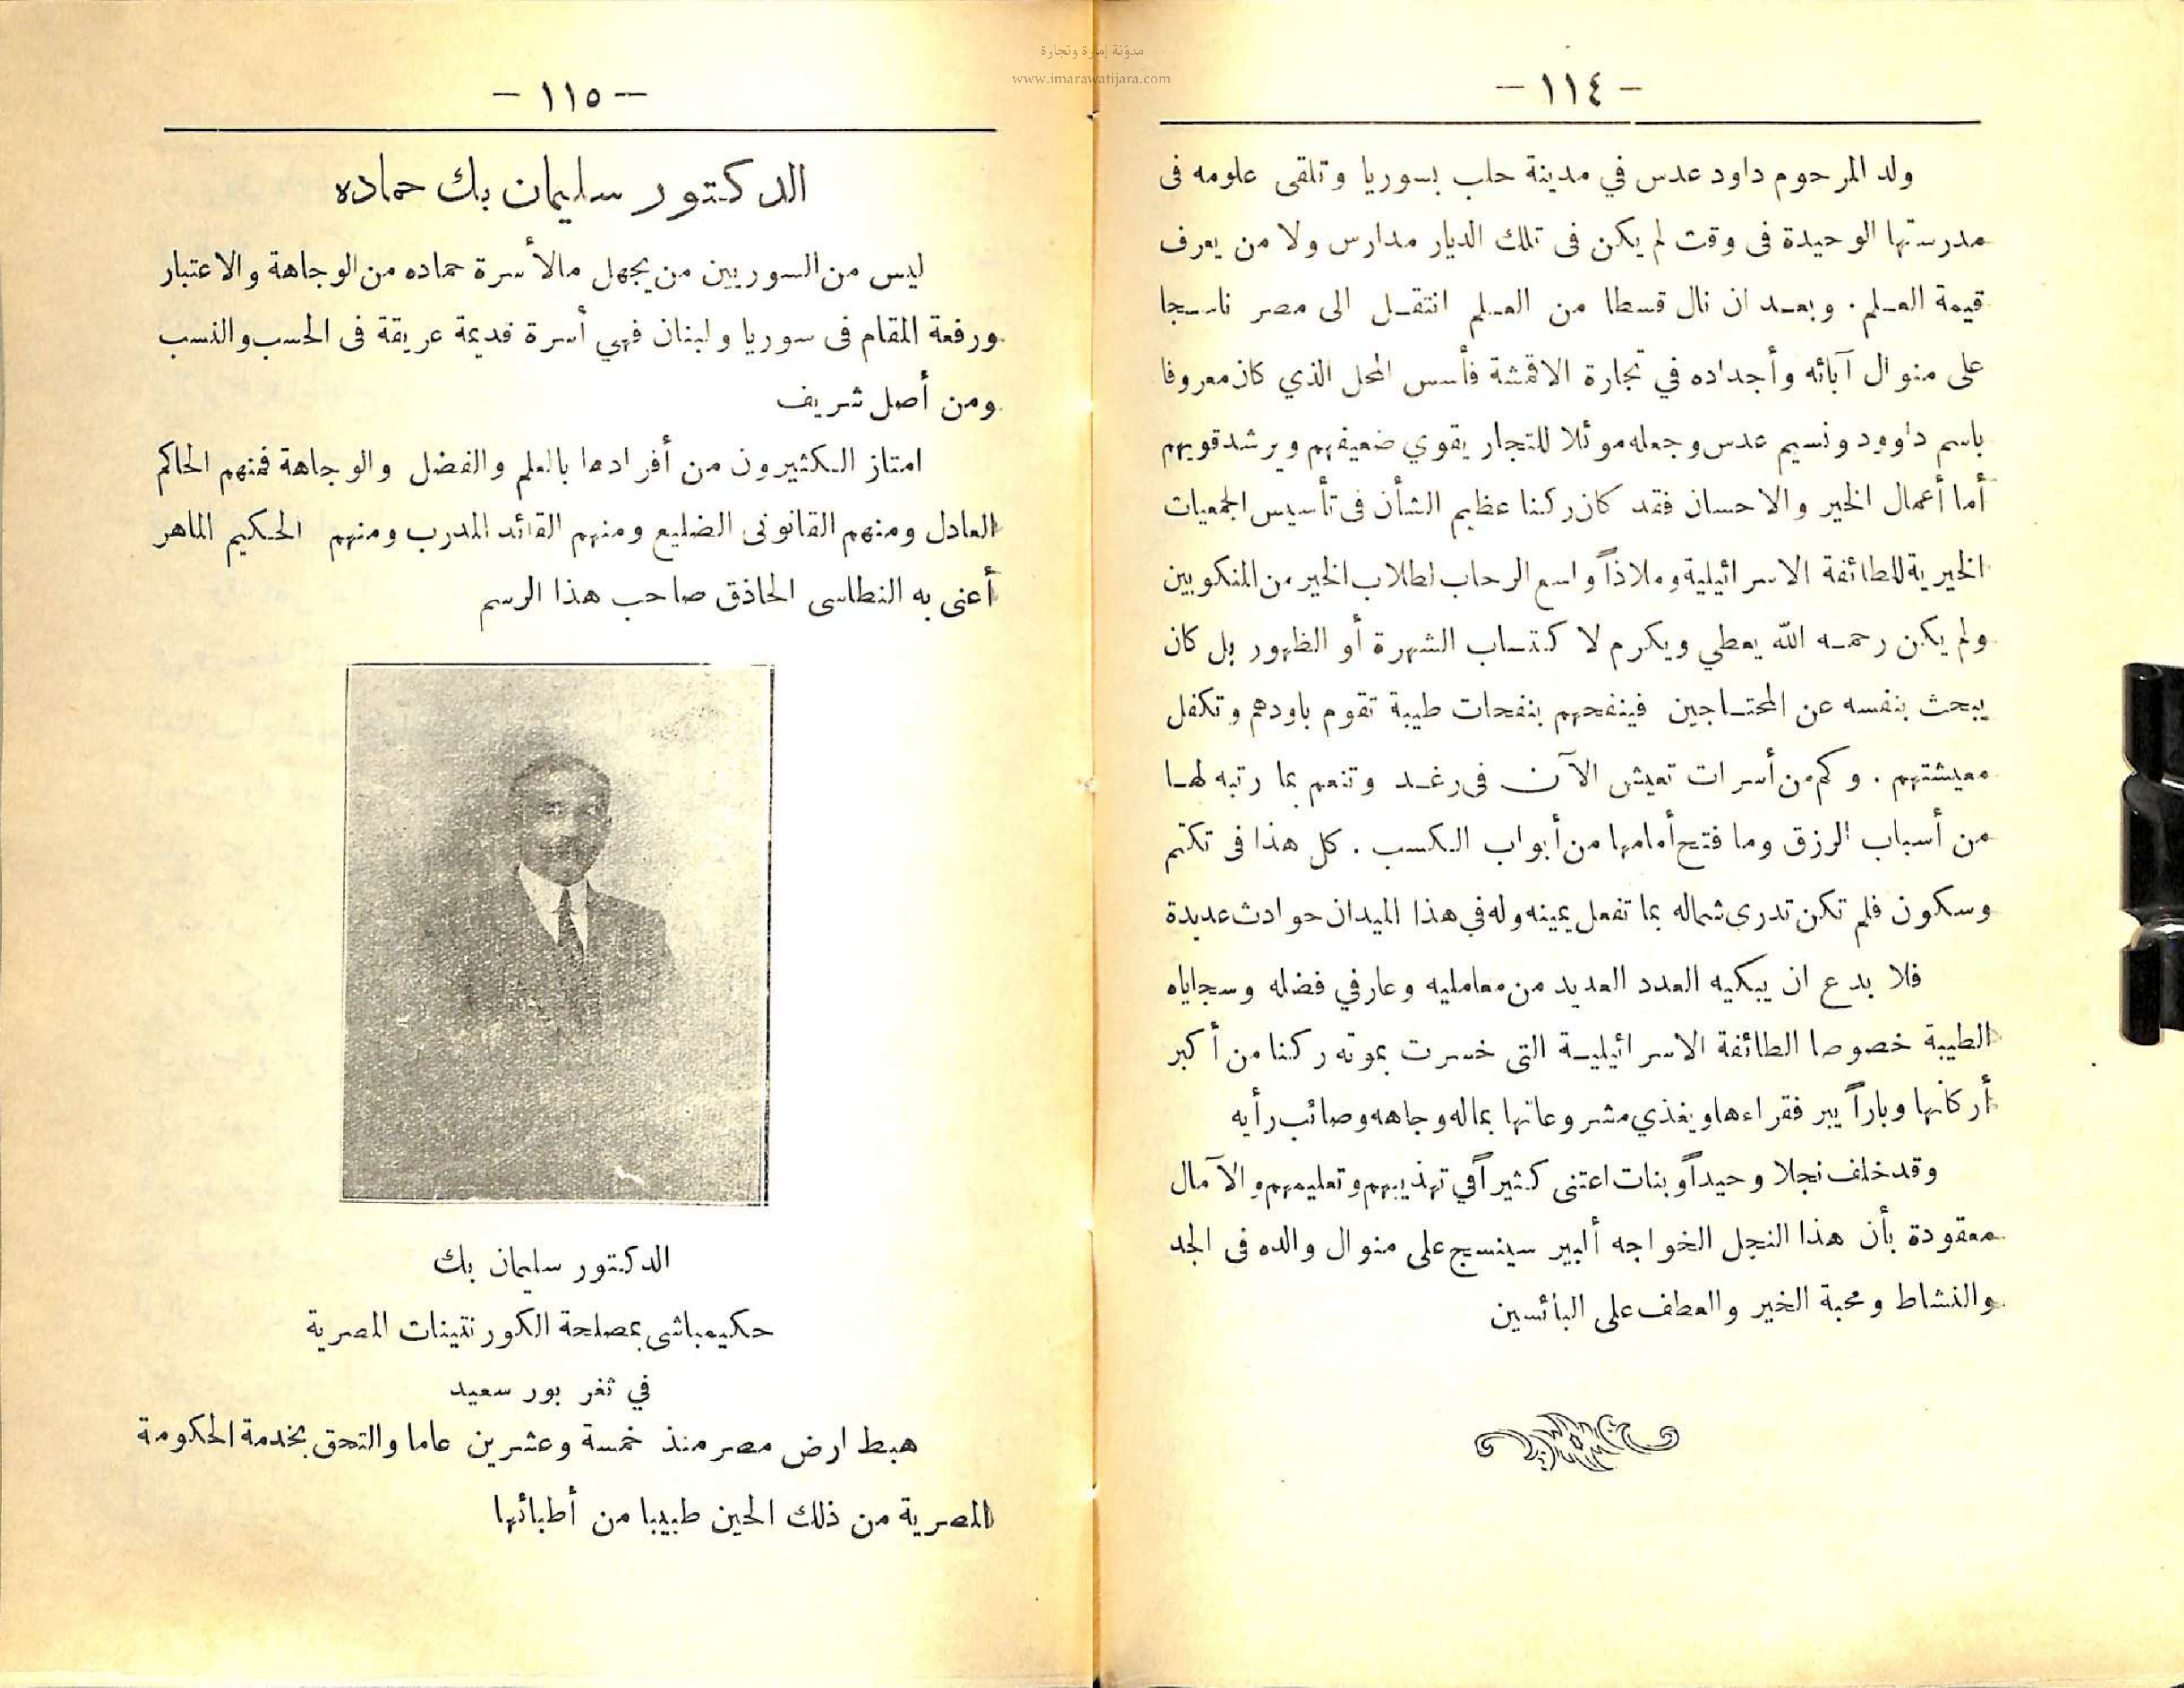 مدوّنة إمارة وتجارة
www.imarawatijara.com
— ١١٤ —
ولد المرحوم داود عدس في مدينة حلب بسوريا وتلقى علومه فى
مدرستها الوحيدة فى وقت لم يكن فى تلك الديار مدارس ولا من يعرف
قيمة العـلم . وبعـد ان نال قسطا من العـلم انتقـل الى مصر ناسـجا
على منوال آبائه وأجداده في تجارة الاقمشة فأسس المحل الذي كان معروفا
باسم داوود ونسيم عدس وجعله موئلا للتجار يقوي ضعيفهم ويرشد قويهم
أما أعمال الخير والاحسان فقد كان ركنا عظيم الشأن فى تأسيس الجمعيات
الخيرية للطائفة الاسرائيلية وملاذاً واسع الرحاب لطلاب الخير من المنكوبين
ولم يكن رحمـه الله يعطي ويكرم لا كتساب الشهرة أو الظهور بل كان
يبحث بنفسه عن المحتـاجين فينفحهم بنفحات طيبة تقوم باودهم وتكفل
معيشتهم . وكم من أسرات تعيش الآن فى رغـد وتنعم بما رتبه لهـا
من أسباب الرزق وما فتح أمامها من أبواب الـكسب . كل هذا فى تكتم
وسكون فلم تكن تدرى شماله بما تفعل يمينه وله في هذا الميدان حوادث عديدة
فلا بدع ان يبكيه العدد العديد من معامليه وعارفي فضله وسجاياه
الطيبة خصوصا الطائفة الاسرائيليـة التى خسرت بموته ركنا من أكبر
أركانها وباراً يبر فقراءها ويغذي مشروعاتها بماله وجاهه وصائب رأيه
وقد خلف نجلا وحيداً وبنات اعتنى كثيراً في تهذيبهم وتعليمهم والآمال
معقودة بأن هذا النجل الخواجه ألبير سينسج على منوال والده فى الجد
والنشاط ومحبة الخير والعطف على البائسين
— ١١٥ —
الدكتور سليمان بك حماده
ليس من السوريين من يجهل مالأسرة حماده من الوجاهة والاعتبار
ورفعة المقام فى سوريا ولبنان فهي أسرة قديمة عريقة فى الحسب والنسب
ومن أصل شريف
امتاز الـكثيرون من أفرادها بالعلم والفضل والوجاهة فمنهم الحاكم
العادل ومنهم القانونى الضليع ومنهم القائد المدرب ومنهم الحـكيم الماهر
أعنى به النطاسى الحاذق صاحب هذا الرسم
الدكتور سليمان بك
حكيمباشى بمصلحة الكورنتينات المصرية
في ثغر بور سعيد
هبط ارض مصر منذ خمسة وعشرين عاما والتحق بخدمة الحكومة
المصرية من ذلك الحين طبيبا من أطبائها